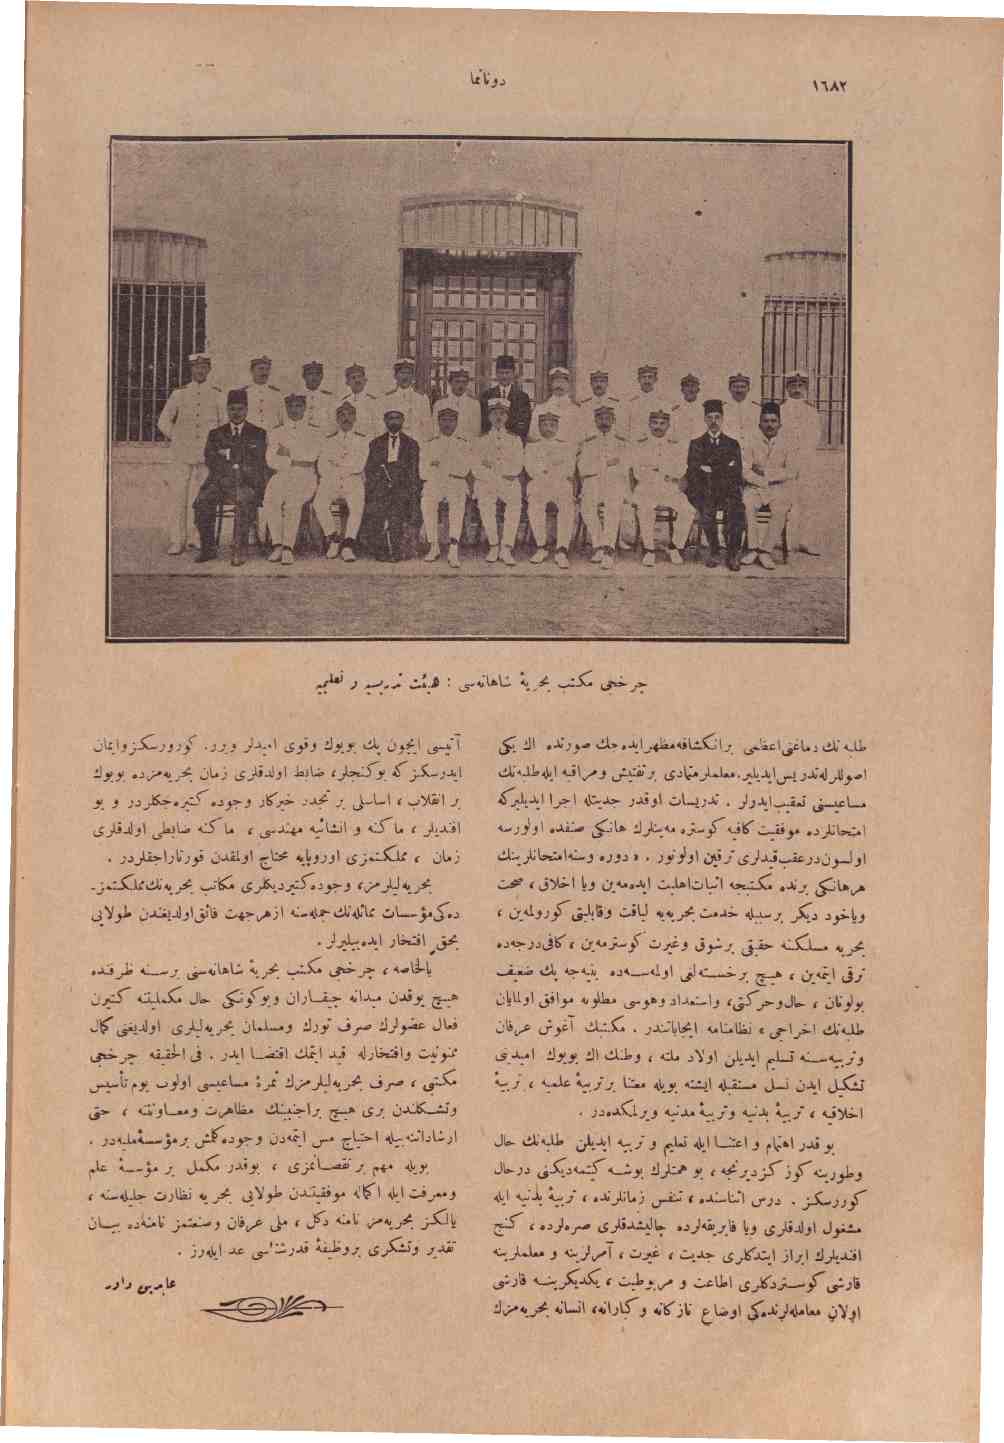 ١٦٨٢
دونانما
چرخجی مکتب بحریهٔ شاهانه‌سی : هیئت تدریسیه و تعلیمیه
طلبه‌نك دماغنی اعظمی بر انکشافه مظهر ایده‌جك صورتده اك یکی
اصوللرله تدریس ایدیلیر. معلملر متمادی بر تفتیش و مراقبه ایله طلبه‌نك
مساعیسنی تعقیب ایدرلر . تدریسات اوقدر جدیتله اجرا ایدیلیرکه
امتحانلرده موفقیت کافیه کوستره مه‌ینلرك هانکی صنفده اولورسه
اولسون درعقب قیدلری ترقین اولونور . « دوره وسنه امتحانلرینك
هرهانکی برنده مکتبجه اثبات اهلیت ایده‌مه‌ین ویا اخلاق ، صحت
ویاخود دیکر برسببله خدمت بحریه‌یه لیاقت وقابلیتی کورولمه‌ین ،
بحریه مسلکنه حقیقی برشوق وغیرت کوسترمه‌ین ، کافی درجه‌ده
ترقی ایتمه‌ین ، هیچ برخسته‌لغی اولمه‌سه‌ده بنیه‌جه پك ضعیف
بولونان ، حال وحرکتی، واستعداد وهوسی مطلوبه موافق اولمایان
طلبه‌نك اخراجی » نظامنامه ایجاباتندر . مکتبك آغوش عرفان
وتربیه‌سنه تسلیم ایدیلن اولاد ملته ، وطنك اك بویوك امیدینی
تشکیل ایدن نسل مستقبله ایشته بویله معتنا برتربیهٔ علمیه ، تربیهٔ
اخلاقیه ، تربیهٔ بدنیه وتربیهٔ مدنیه ویرلمکده‌در .
بو قدر اهتمام و اعتنا ایله تعلیم و تربیه ایدیلن طلبه‌نك حال
وطورینه کوز کزدیرنجه ، بو همتلرك بوشه کیتمه‌دیکنی درحال
کوررسکز . درس اثناسنده ، تنفس زمانلرنده ، تربیهٔ بدنیه ایله
مشغول اولدقلری ویا فابریقه‌لرده چالیشدقلری صره‌لرده ، کنج
افندیلرك ابراز ایتدکلری جدیت ، غیرت ، آمرلرینه و معلملرینه
قارشی کوستردکلری اطاعت و مربوطیت ، یکدیکرینه قارشی
اولان معامله‌لرنده‌کی اوضاع نازکانه و کبارانه، انسانه بحریه‌مزك
آتیسی ایچون پك بویوك وقوی امیدلر ویرر. کورورسکز وایمان
ایدرسکز که بوکنجلر، ضابط اولدقلری زمان بحریه‌مزده بویوك
بر انقلاب ، اساسلی بر تجدد خیرکار وجوده کتیره‌جکلردر و بو
افندیلر ، ماکنه و انشائیه مهندسی ، ماکنه ضابطی اولدقلری
زمان ، مملکتمزی اوروپایه محتاج اولمقدن قورتاراجقلردر .
بحریه‌لیلرمز، وجوده کتیردیکلری مکاتب بحریه‌نك مملکتمز-
ده‌کی مؤسسات مماثله‌نك جمله‌سنه ازهرجهت فائق اولدیغندن طولایی
بحق افتخار ایده‌بیلیرلر .
بالخاصه ، چرخجی مکتب بحریهٔ شاهانه‌سنی برسنه ظرفنده
هیچ یوقدن میدانه چیقاران وبوکونکی حال مکملیتنه کتیرن
فعال عضولرك صرف تورك ومسلمان بحریه‌لیلری اولدیغنی کمال
ممنونیت وافتخارله قید ایتمك اقتضا ایدر . فی الحقیقه چرخجی
مکتبی ، صرف بحریه‌لیلرمزك ثمرهٔ مساعیسی اولوب یوم تأسیس
وتشکلندن بری هیچ براجنبینك مظاهرت ومعاونتنه ، حتی
ارشاداتنه بیله احتیاج مس ایتمه‌دن وجوده کلمش برمؤسسهٔ ملیه‌در .
بویله مهم بر نقصانمزی ، بوقدر مکمل بر مؤسسهٔ علم
ومعرفت ایله اکماله موفقیتندن طولایی بحریه نظارت جلیله‌سنه ،
یالکز بحریه‌مز نامنه دکل ، ملی عرفان وصنعتمز نامنه‌ده بیان
تقدیر وتشکری بروظیفهٔ قدرشناسی عد ایله‌رز .
عابدین داور